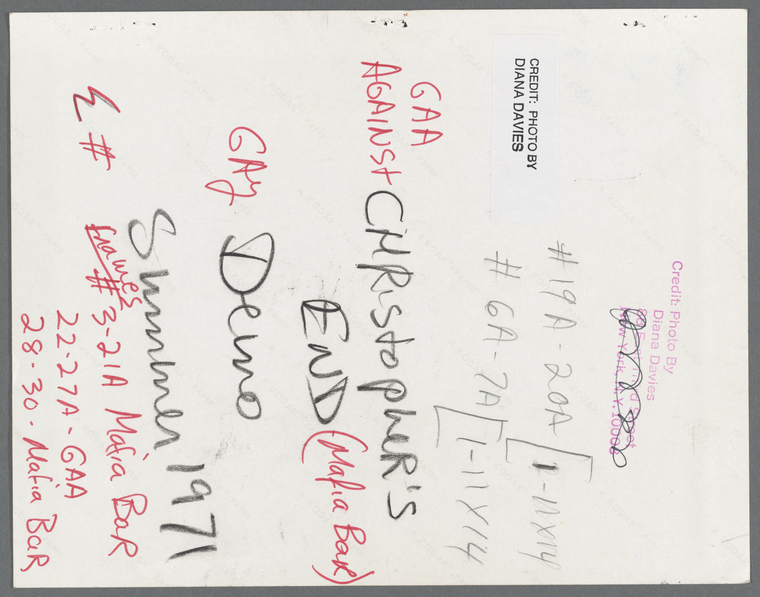 Credit: Photo By
Diana Davies
New York, N.Y. 10003
CREDIT: PHOTO BY
DIANA DAVIES
#19A-20A [1-11X14
#6A-7A [1-11X14
GAA
AGAINSt CHRIStopher's
END (Mafia BaR)
GAy Demo
Summer 1971
#
frames
#3-21A Mafia BaR
22-27A-GAA
28-30-Mafia BaR